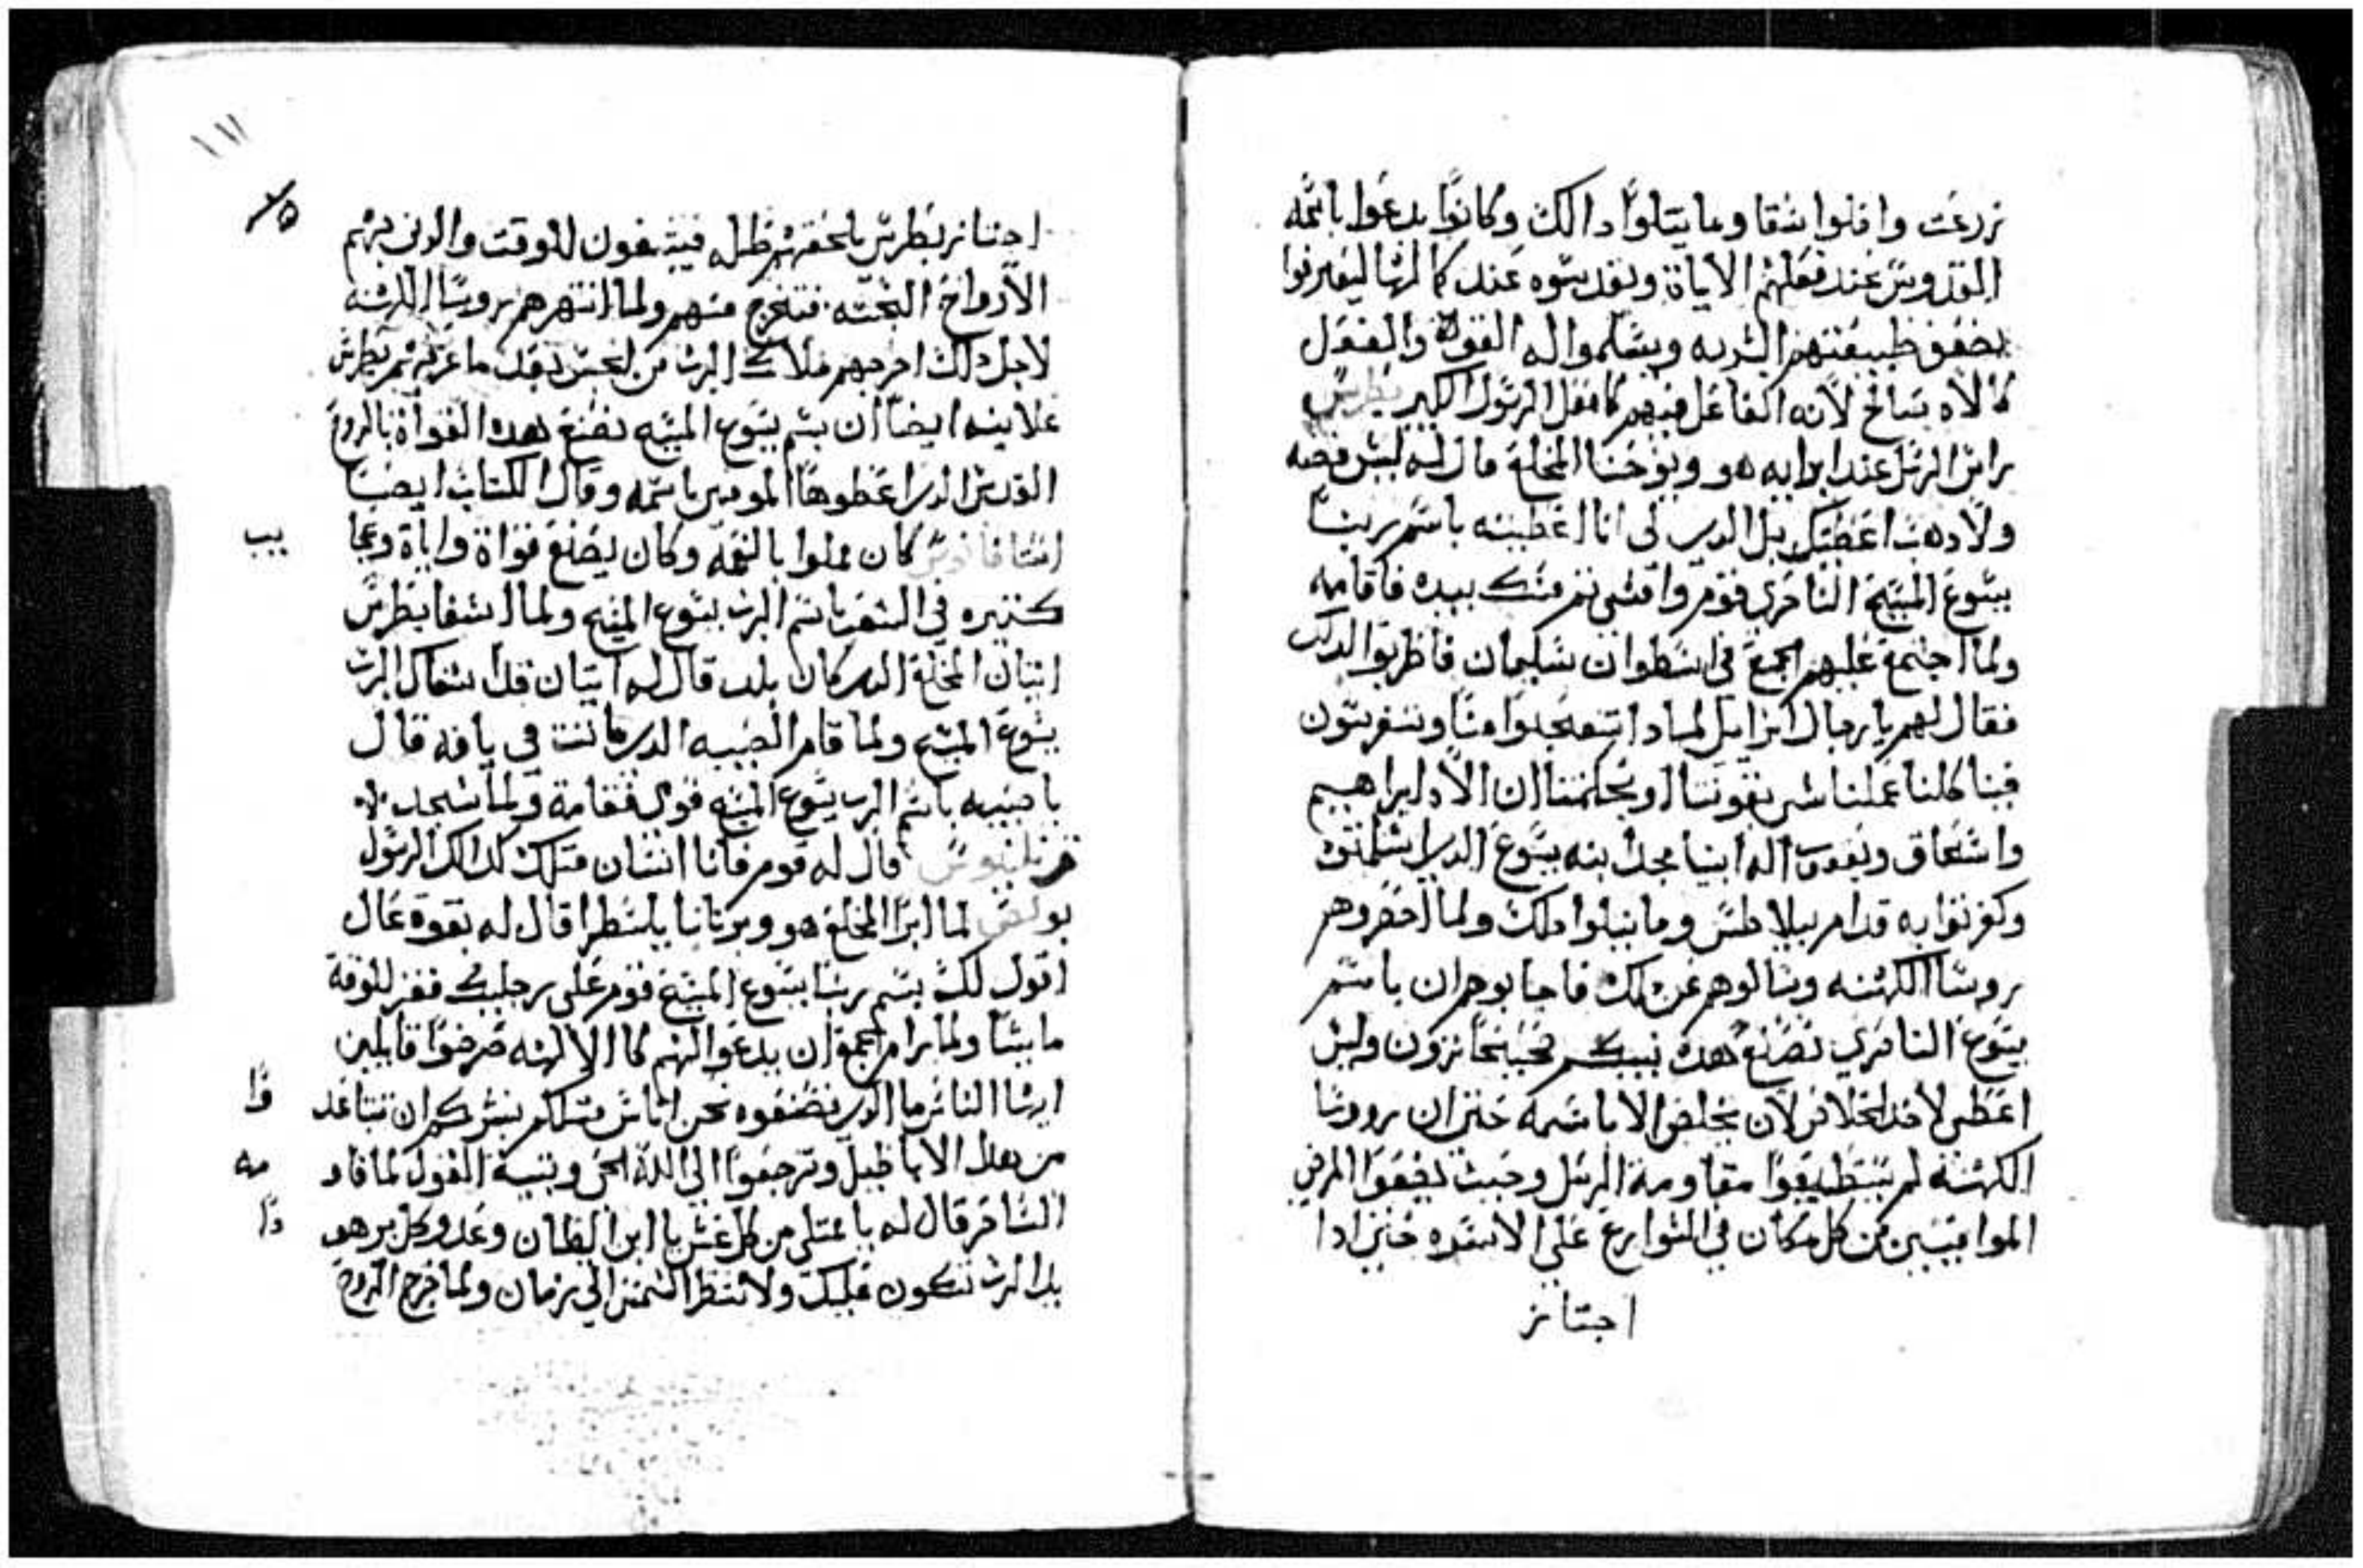 زرعت وافلوا شقا وما يتلوا دالك وكانوا يدعوا باسمه
القدوس عند فعلهم الاياة وتقديسوه عند كمالها ليعترفوا
بضعف طبيعتهم البشريه ويسلموا له القوة والفعل
كالاه صالح لانه الفاعل فيهم كما فعل الرسول الكبير بطرس
راس الرسل عند ابرايه هو ويوحنا المخلع قال له ليس فضه
ولا دهب اعطيك بل الدي لي انا اعطيته باسم ربنا
يسوع المسيح الناصري قوم وامشي تم مسك بيده فاقامه
ولما اجتمع عليهم الجمع في اسطوان سليمان
فقال لهم يا رجال اسراييل لمادا تتعجبوا منا وتتفرسون
فينا كاننا عملنا شي بقوتنا او بحكمتنا ان الاه ابراهيم
واسحاق ويعقوب اله ابينا مجد ابنه يسوع الدي اسلمتوه
وكفرتوا به قدام بيلاطس وما يتلوا دلك ولما احضروهم
روسا الكهنه وسالوهم عن دلك فاجابوهم ان باسم
يسوع الناصري نصنع هده وليس
اعطي لاحد الخلاص لان يخلص الا باسمه حتي ان روسا
الكهنة لم يستطيعوا مقاومة الرسل وحيث يضعوا المرضي
من كل مكان في الشوارع علي الاسره حتي ادا
اجتاز
١١١
اجتاز بطرس يلحقهم ظله فيتعفون للوقت والدي بهم
الارواح النجسه فتخرج منهم ولما انتهرهم روسا الكهنه
لاجل دلك اخرجهم ملاك الرب من الحبس بعد ما عرفهم بطرس
علانيه ايضا ان بسم يسوع المسيح نصنع هده القواة بالروح
القدس الدي اعطوها المومنين باسمه وقال الكتاب ايضا
اسطافانوس كان مملوا بالنعمه وكان يصنع قواة واياة وعجا
يب
كتيره في الشعب باسم الرب يسوع المسيح ولما اشفا بطرس
انيان المخلع الدي كان بلد قال له انيان قد اشفاك الرب
يسوع المسيح ولما قام الصبيه الدي ماتت في يافه قال
يا صبيه باسم الرب يسوع المسيح قومي فقامة ولما سجد له
قرنليوس قال له قوم فانا انسان متلك كدالك الرسول
بولس لما ابرا المخلع هو وبرنابا بلسطرا قال له بقوة عال
اقول لك بسم ربنا يسوع المسيح قوم علي رجليك فقفز للوقة
ماشيا ولما رام الجمع ان يدعوا لهم كما الالهه صرخوا قايلين
ايها الناس ما الدي تصنعوه نحن اناس متلكم نبشركم ان تتباعد
وا
من هده الاباطيل وترجعوا الي الله الحي وبقية القول لما قاو
مه
الساحر قال له يا ممتلي من كل غش يا ابن الشيطان وعدو كل بر هو
دا
يد الرب تكون عليك ولا تنظر الشمس الي زمان ولما خرج الروح